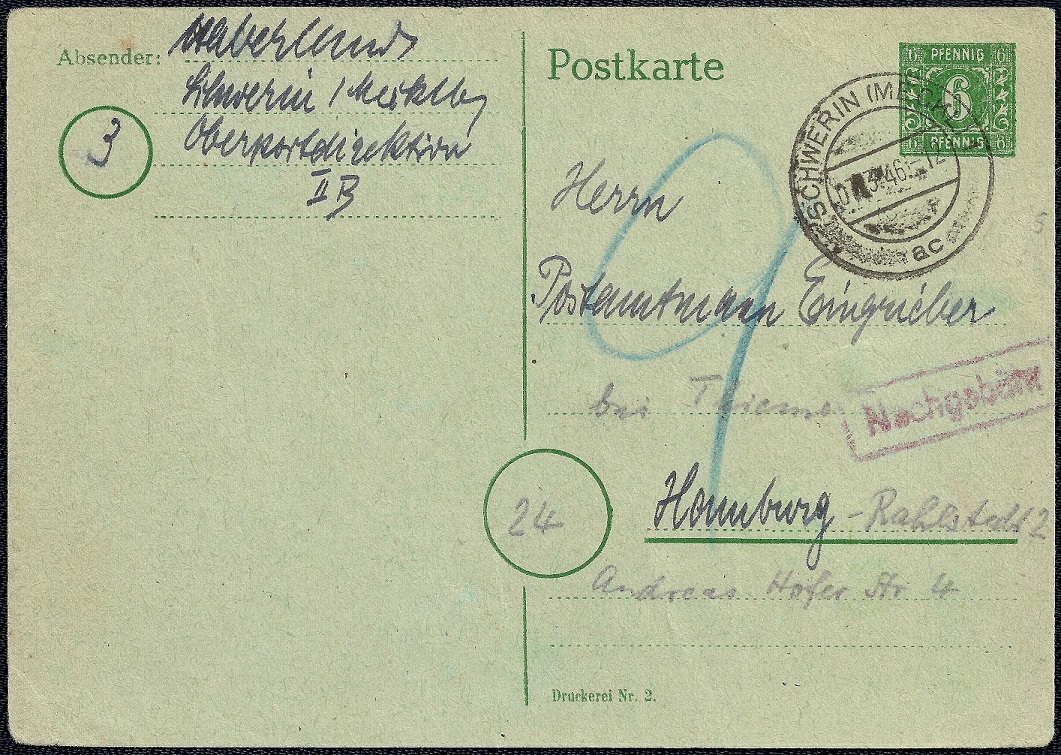 Absender: Haberland
Schwerin / Mecklbg
3
Oberpostdirektion
II B
Postkarte
6 PFENNIG 6
6
6 PFENNIG 6
SCHWERIN (MECKL)
46
ac
Herrn
Postamtmann Eingrieber
9
bei Thieme
Nachgebühr
24
Hamburg - Rahlstedt 2
Andreas Hofer Str 4
Druckerei Nr. 2.
5